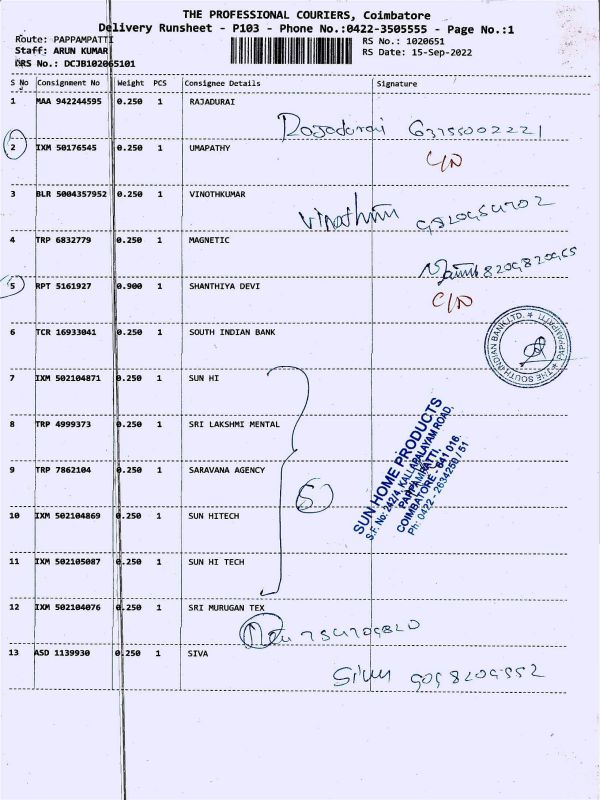 THE PROFESSIONAL COURIERS, Coimbatore
Delivery Runsheet - P103 - Phone No.:0422-3505555 - Page No.:1
Route: PAPPAMPATTI
RS No.: 1020651
Staff: ARUN KUMAR
RS Date: 15-Sep-2022
DRS No.: DCJB102065101
S No Consignment No Weight PCS Consignee Details Signature
1 MAA 942244595 0.250 1 RAJADURAI
Rajadurai 63755002221
2 IXM 50176545 0.250 1 UMAPATHY
C/N
3 BLR 5004357952 0.250 1 VINOTHKUMAR
4 TRP 6832779 0.250 1 MAGNETIC
5 RPT 5161927 0.900 1 SHANTHIYA DEVI
C/N
6 TCR 16933041 0.250 1 SOUTH INDIAN BANK
THE SOUTH INDIAN BANK LTD. PAPPAMPATTI
7 IXM 502104871 0.250 1 SUN HI
8 TRP 4999373 0.250 1 SRI LAKSHMI MENTAL
9 TRP 7862104 0.250 1 SARAVANA AGENCY
5
SUN HOME PRODUCTS
S.F. No: 242/4, KALLAPALAYAM ROAD,
PAPPAMPATTI,
COIMBATORE - 641 016.
Ph: 0422 - 2634250 / 51
10 IXM 502104869 0.250 1 SUN HITECH
11 IXM 502105087 0.250 1 SUN HI TECH
12 IXM 502104076 0.250 1 SRI MURUGAN TEX
13 ASD 1139930 0.250 1 SIVA